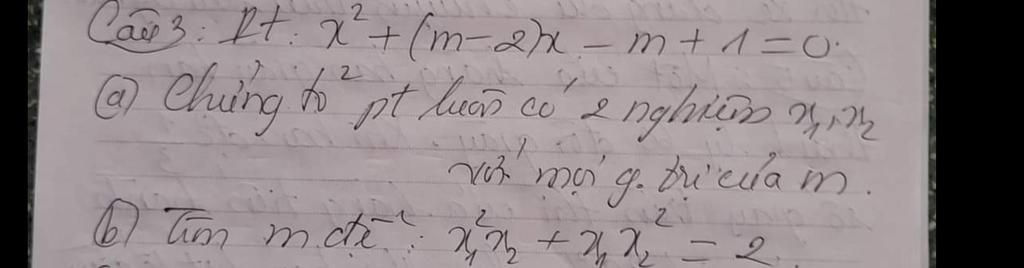 Câu 3: Pt: x² + (m-2)x - m + 1 = 0.
a) Chứng tỏ pt luôn có 2 nghiệm x₁, x₂
với mọi g. trị của m.
b) Tìm m để: x₁²x₂ + x₁x₂² = 2.